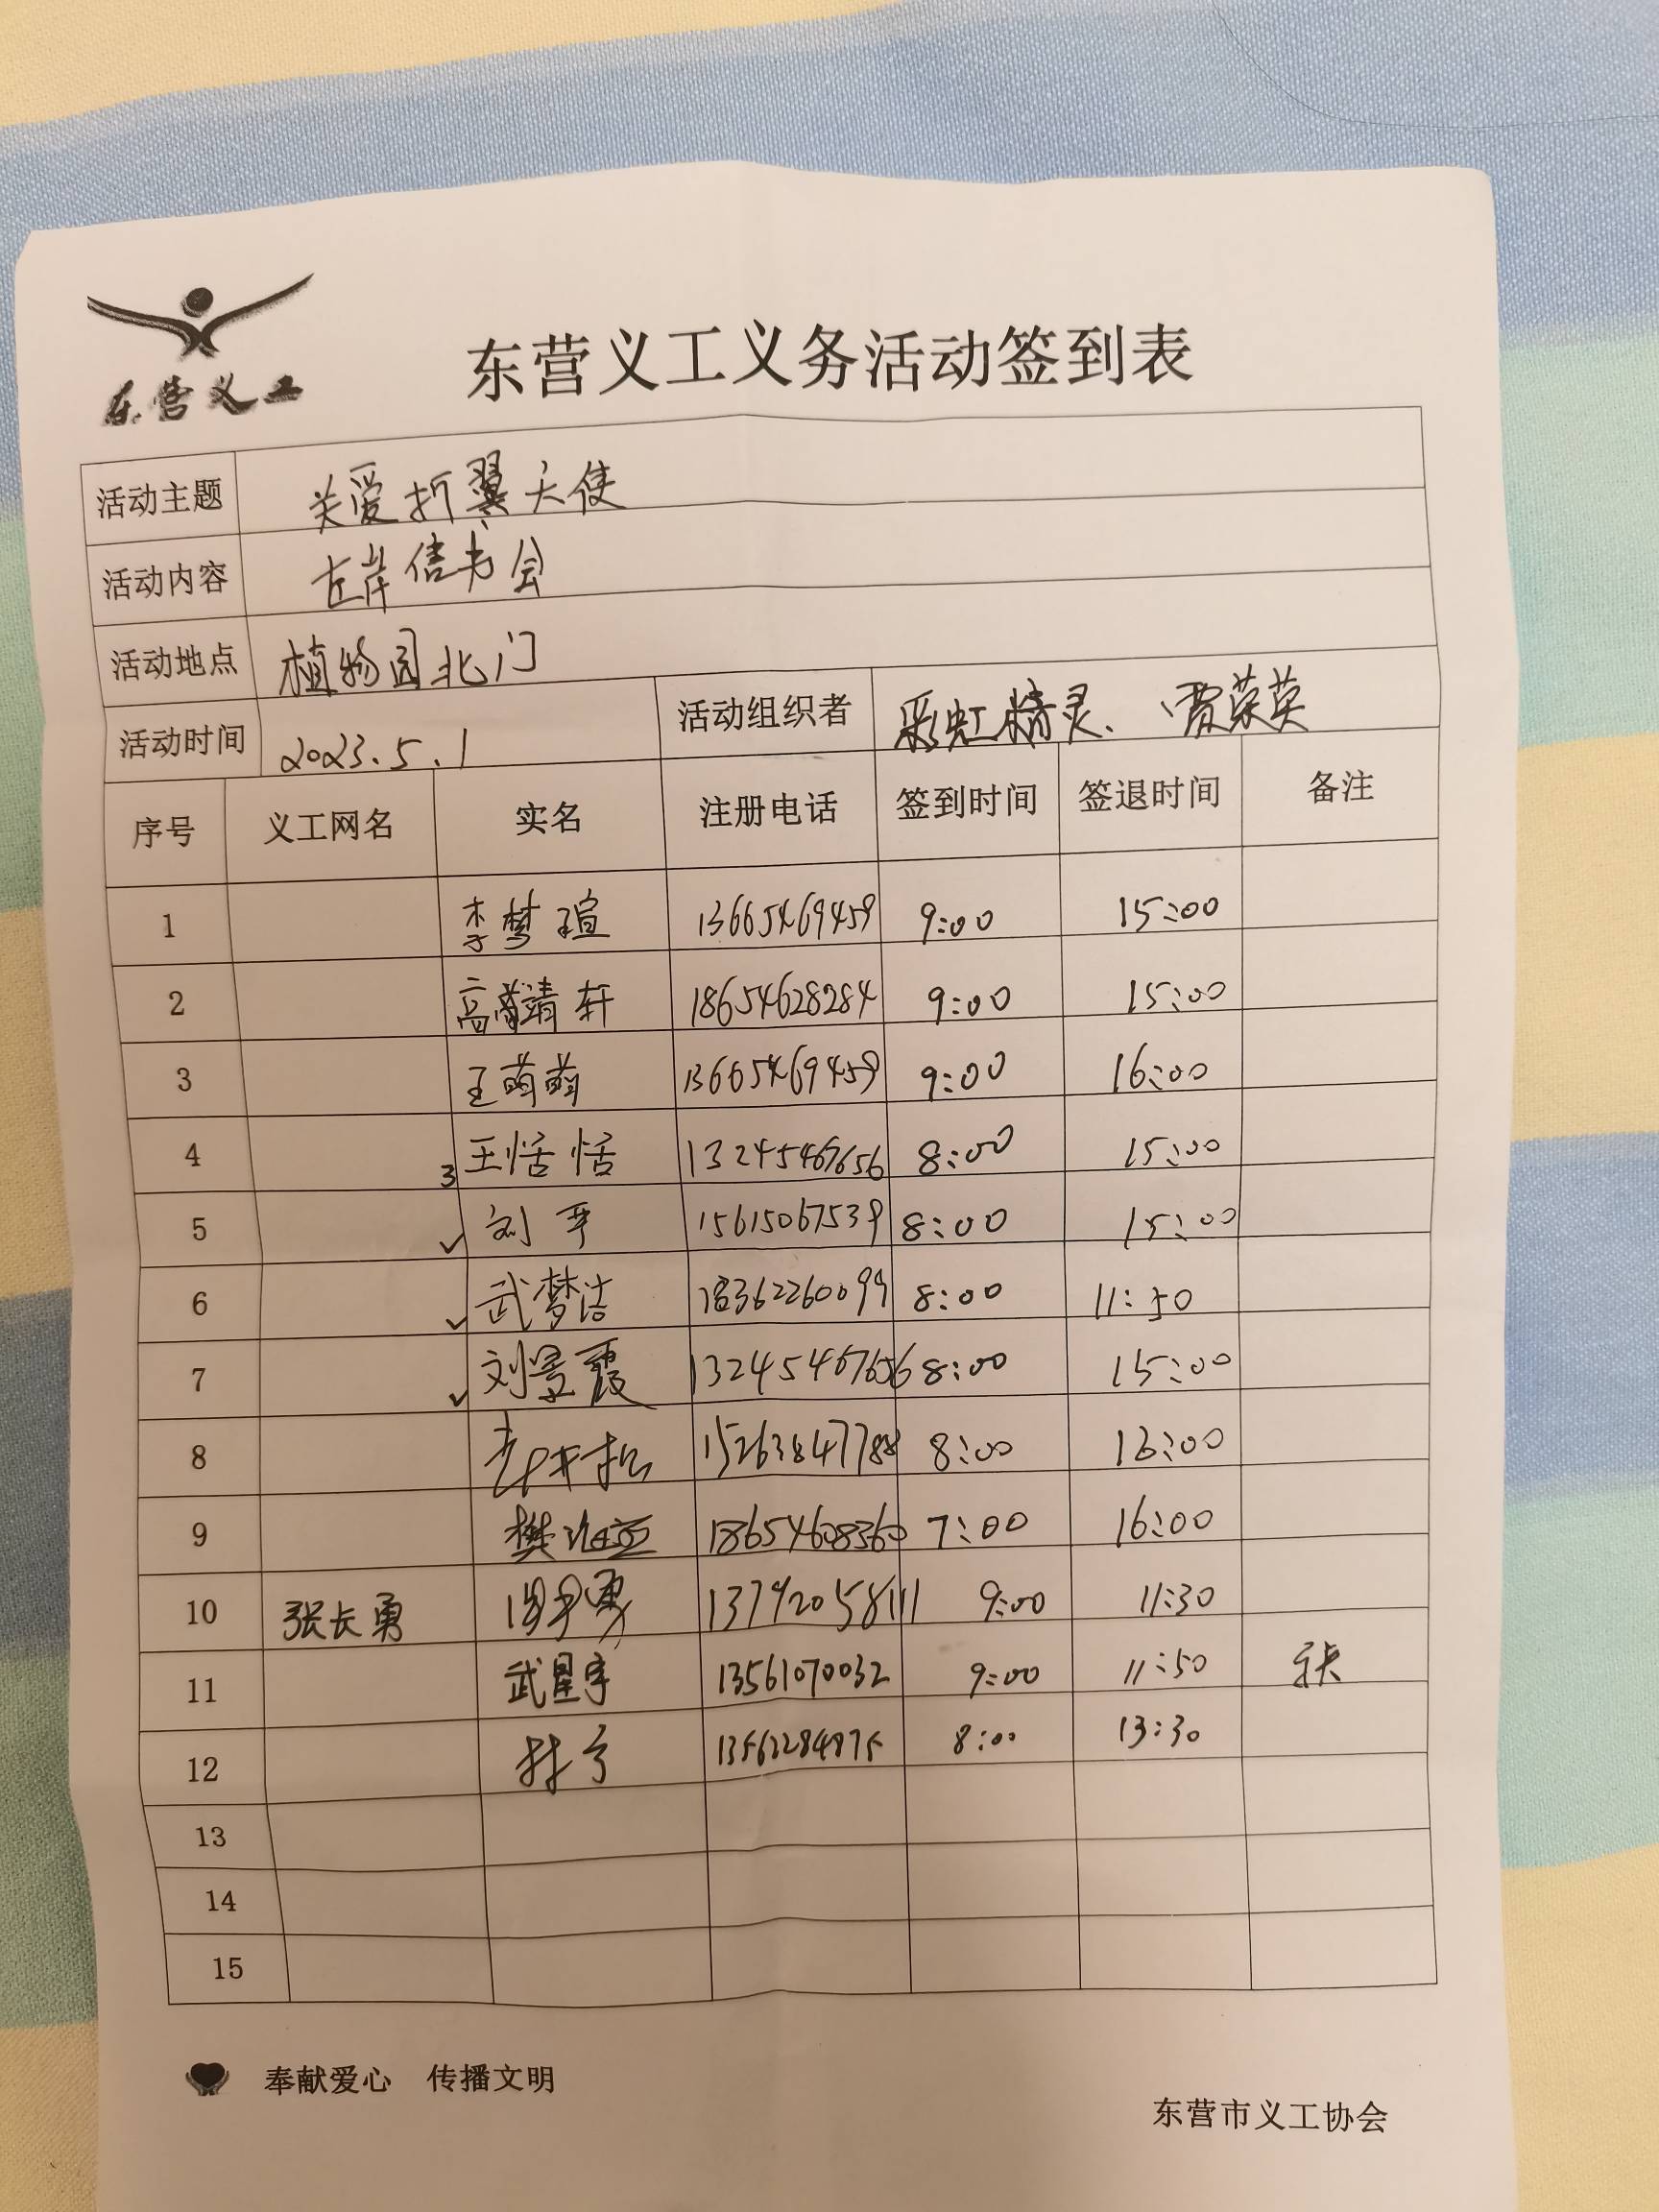 东营义工
东营义工义务活动签到表
活动主题 关爱折翼天使
活动内容 左岸信书会
活动地点 植物园北门
活动时间 2023.5.1 活动组织者 彩虹精灵、贾荣英
序号 义工网名 实名 注册电话 签到时间 签退时间 备注
1 李梦瑄 13665469459 9:00 15:00
2 高 靖轩 18654628284 9:00 15:00
3 王萌萌 13665469459 9:00 16:00
4 3 王恬恬 13245467656 8:00 15:00
5 ✓ 刘平 15615067539 8:00 15:00
6 ✓ 武梦洁 18362260099 8:00 11:50
7 ✓ 刘景霞 13245467656 8:00 15:00
8 15263847788 8:00 16:00
9 樊 18654608360 7:00 16:00
10 张长勇 13792058111 9:00 11:30
11 武星宇 13561070032 9:00 11:50
12 13562284975 8:00 13:30
13
14
15
奉献爱心 传播文明
东营市义工协会